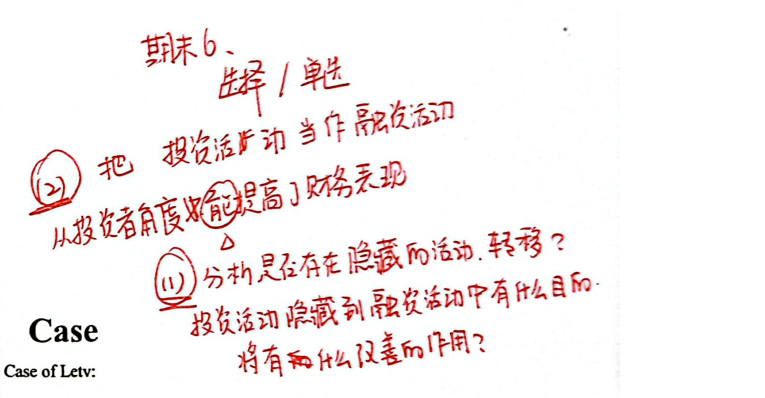 期末6、
选择/单选
(2) 把 投资活动 当作融资活动
从投资者角度 能提高了财务表现
(1) 分析是否存在隐藏的活动、转移?
投资活动隐藏到融资活动中有什么目的.
将有什么改善的作用?
Case
Case of Letv: